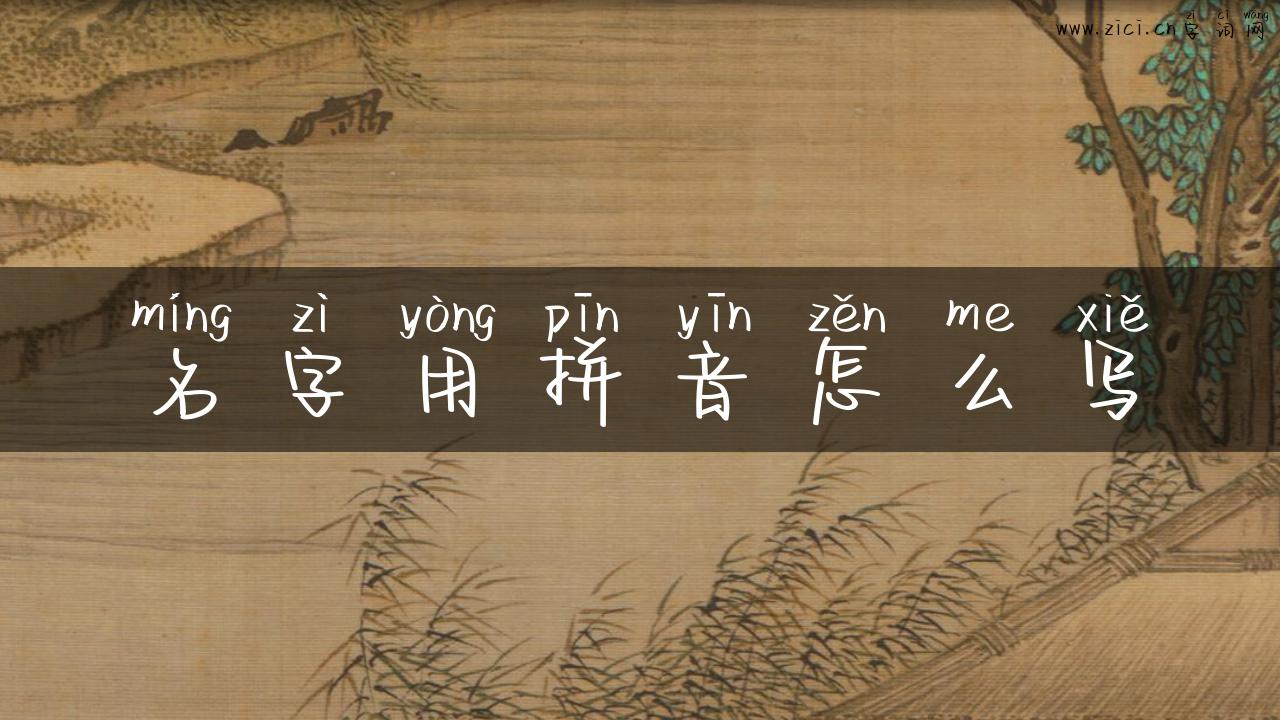 zì cí wǎng
www.zici.cn字词网
míng zì yòng pīn yīn zěn me xiě
名字用拼音怎么写